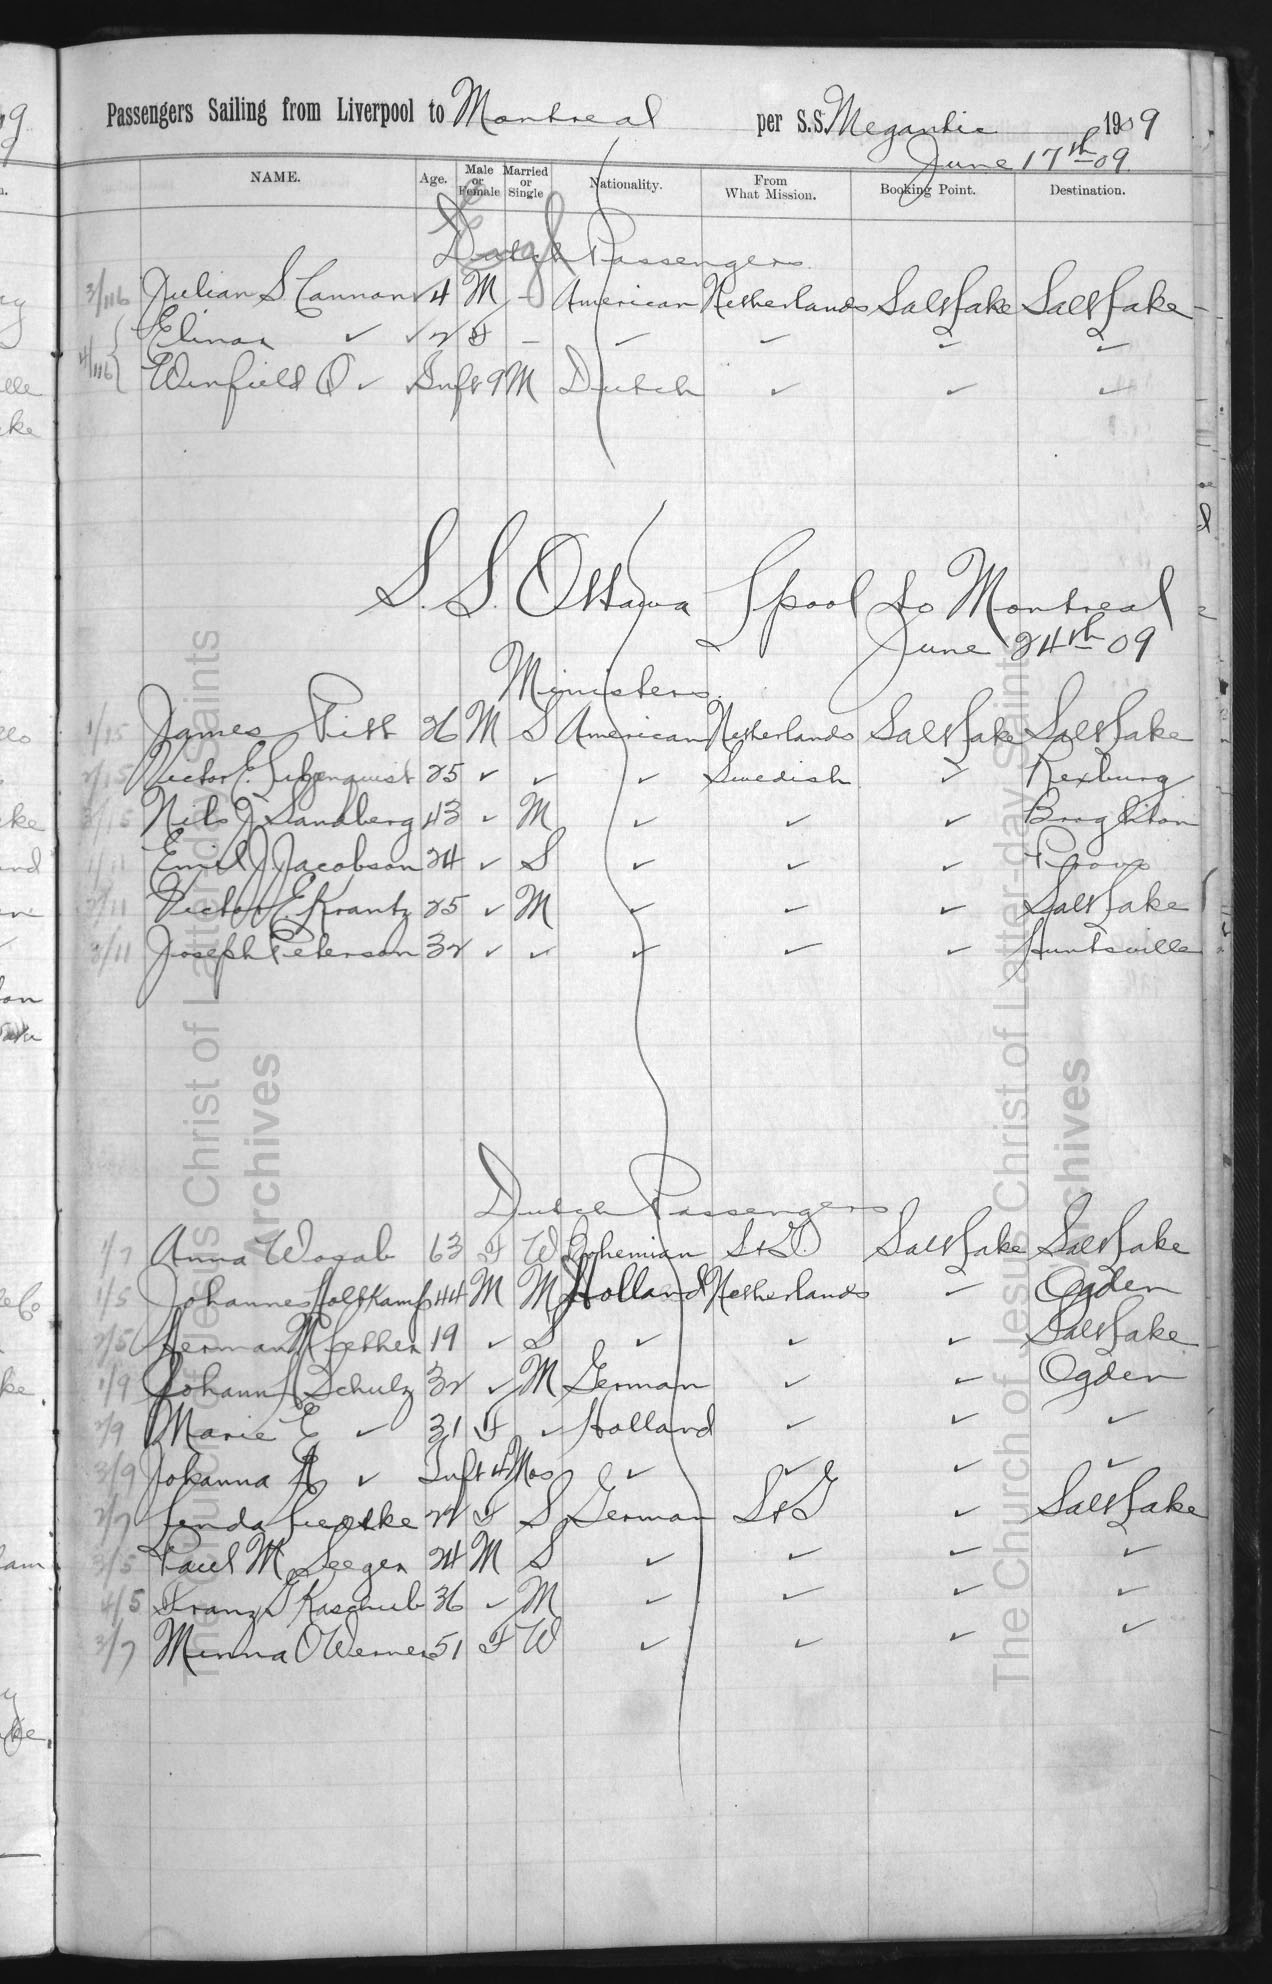 Passengers Sailing from Liverpool to Montreal per S.S. Megantic 1909
June 17th 09
NAME. Age. Male or Female Married or Single Nationality. From What Mission. Booking Point. Destination.
Dutch Passengers
3/116 Julian S Cannon ✓ 4 M - American Netherlands Salt Lake Salt Lake
4/116 Elinor ✓ ✓ 2 F - ✓ ✓ ✓ ✓
Winfield Q ✓ ✓ Inft 9 M Dutch ✓ ✓ ✓
S. S. Ottawa Lpool to Montreal
June 24th 09
Ministers
1/15 James Pitt 26 M S American Netherlands Salt Lake Salt Lake
2/15 Victor E. Liljenquist 25 ✓ ✓ ✓ Swedish ✓ Rexburg
3/15 Nils J Sandberg 43 ✓ M ✓ ✓ ✓
1/11 Emil J Jacobson 24 ✓ S ✓ ✓ ✓ Provo
2/11 Victor E Krantz 25 ✓ M ✓ ✓ ✓ Salt Lake
3/11 Joseph Peterson 32 ✓ ✓ ✓ ✓ ✓ Huntsville
Dutch Passengers
1/7 Anna 63 F W Bohemian S&G Salt Lake Salt Lake
1/5 Johannes Holtkamp 44 M M Holland Netherlands ✓ Ogden
2/5 Herman M 19 ✓ S ✓ ✓ ✓ Salt Lake
1/9 Johann Schulz 32 ✓ M German ✓ ✓ Ogden
2/9 Marie E ✓ 31 F ✓ Holland ✓ ✓ ✓
3/9 Johanna A ✓ Inft 4 Mos ✓ ✓ ✓ ✓
2/7 22 F S German S&G ✓ Salt Lake
3/5 Paul M Seeger 24 M S ✓ ✓ ✓ ✓
4/5 Franz G 36 ✓ M ✓ ✓ ✓ ✓
3/7 Minna O Werner 51 F W ✓ ✓ ✓ ✓
The Church of Jesus Christ of Latter-day Saints
Archives
The Church of Jesus Christ of Latter-day Saints
Archives